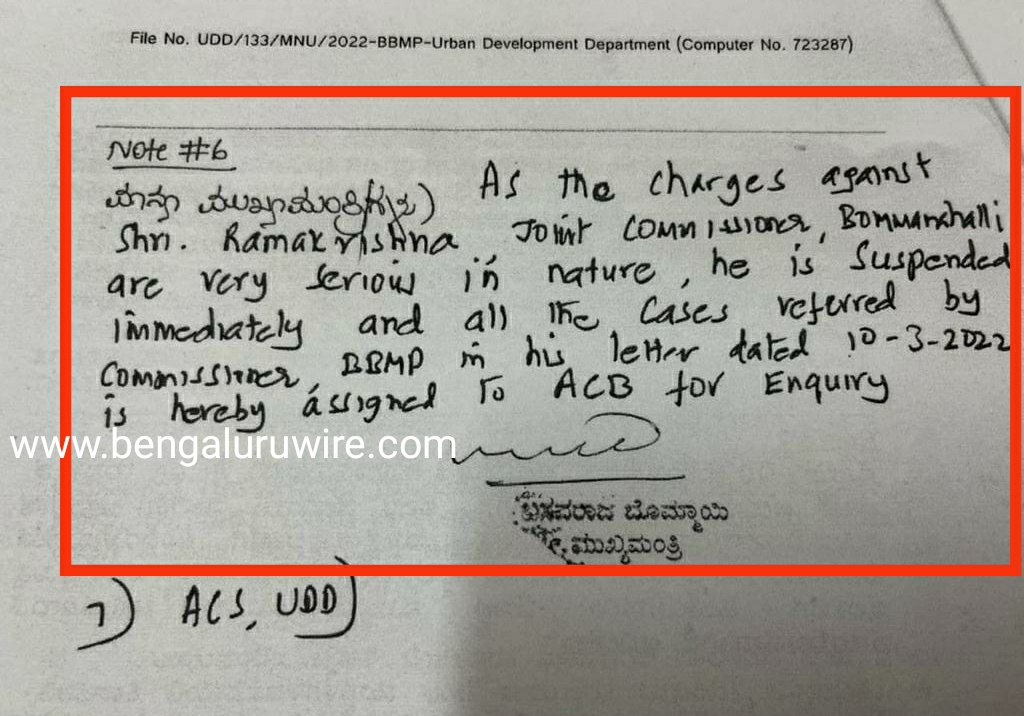 File No. UDD/133/MNU/2022-BBMP-Urban Development Department (Computer No. 723287)
Note #6
ಮಾನ್ಯ ಮುಖ್ಯಮಂತ್ರಿಗಳು) As the charges against
Shri. Ramakrishna Joint Commissioner, Bommanahalli
are very serious in nature, he is suspended
immediately and all the cases referred by
Commissioner, BBMP in his letter dated 10-3-2022
is hereby assigned to ACB for Enquiry
www.bengaluruwire.com
ಬಸವರಾಜ ಬೊಮ್ಮಾಯಿ
ಮುಖ್ಯಮಂತ್ರಿ
7) ACS, UDD)